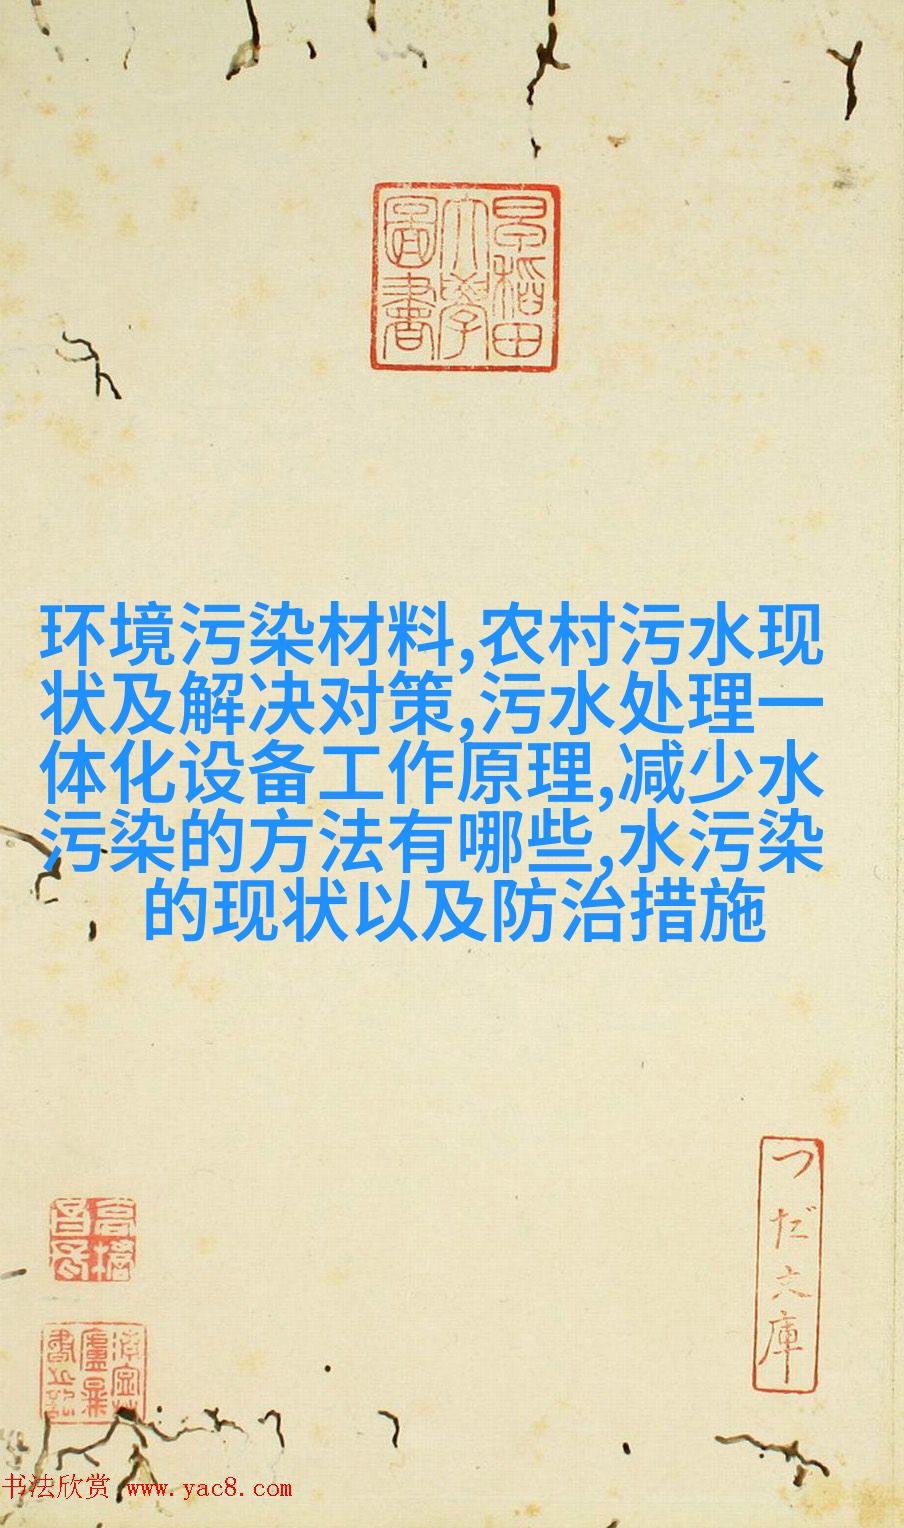 早稲田
大學
圖書
环境污染材料,农村污水现
状及解决对策,污水处理一
体化设备工作原理,减少水
污染的方法有哪些,水污染
的现状以及防治措施
つだ文庫
书法欣赏 www.yac8.com